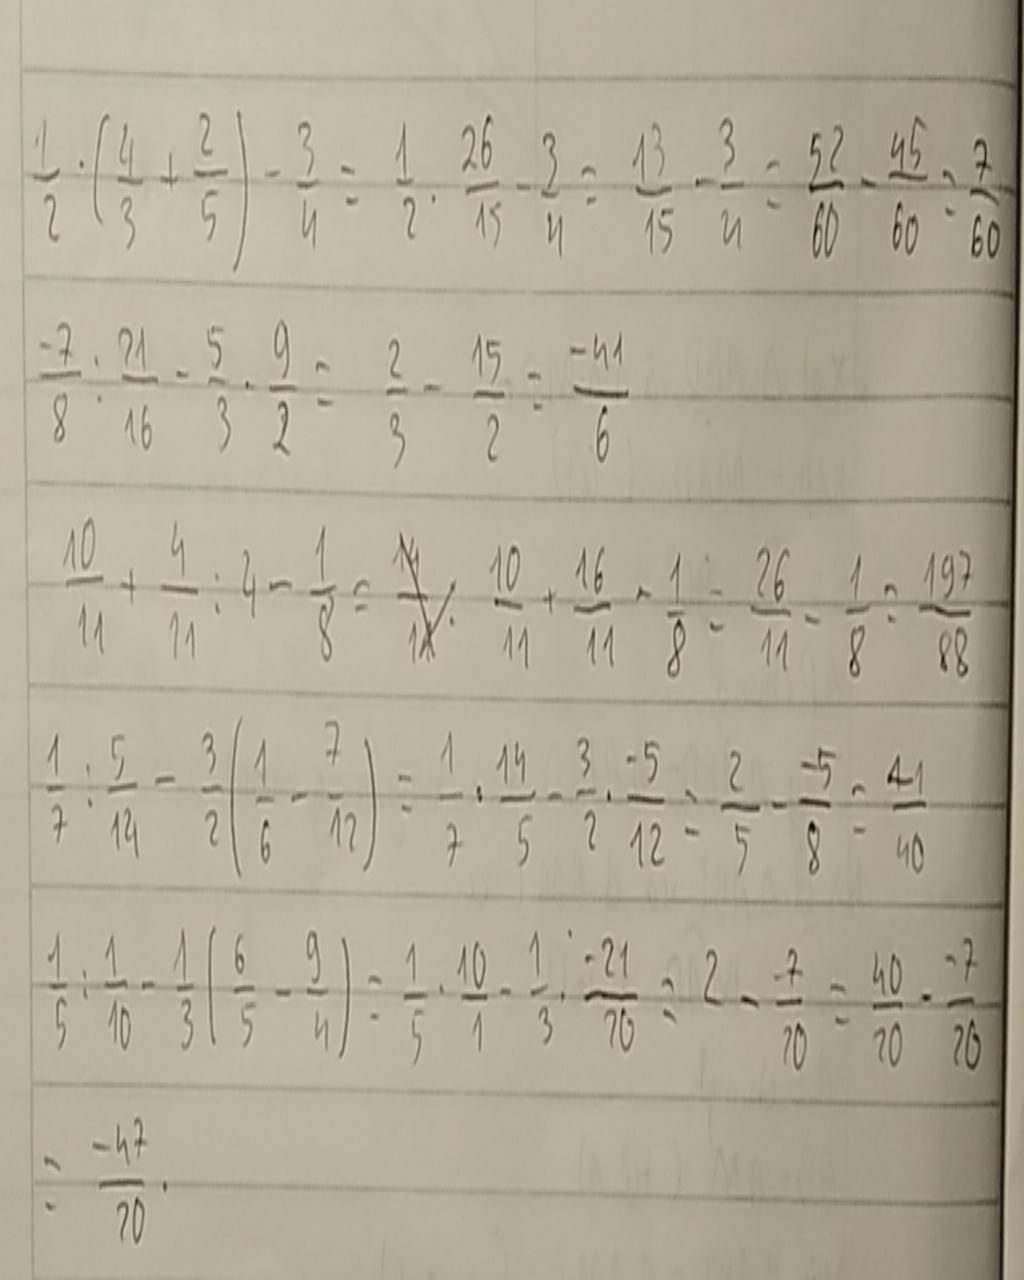 1/2 · (4/3 + 2/5) - 3/4 = 1/2 · 26/15 - 3/4 = 13/15 - 3/4 = 52/60 - 45/60 = 7/60
-7/8 : 21/16 - 5/3 · 9/2 = 2/3 - 15/2 = -41/6
10/11 + 4/11 : 4 - 1/8 = 10/11 + 16/11 - 1/8 = 26/11 - 1/8 = 197/88
1/7 : 5/14 - 3/2 (1/6 - 7/12) = 1/7 · 14/5 - 3/2 · -5/12 = 2/5 - -5/8 = 41/40
1/5 : 1/10 - 1/3 (6/5 - 9/4) = 1/5 · 10/1 - 1/3 · -21/20 = 2 - -7/20 = 40/20 - -7/20
= -47/20 .